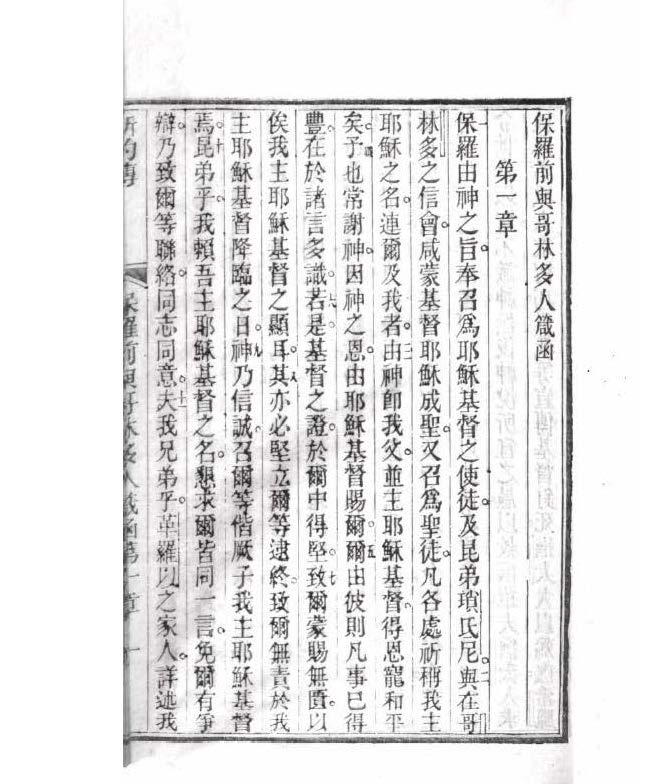 保羅前與哥林多人箴函
第一章
保羅由神之旨。奉召爲耶穌基督之使徒。及昆弟瑣氏尼。與在哥
林多之信會。咸蒙基督耶穌成聖。又召爲聖徒。凡各處祈稱我主
耶穌之名。連爾及我者。由神卽我父。並主耶穌基督。得恩寵和平
矣。予也常謝神。因神之恩。由耶穌基督賜爾。爾由彼則凡事已得
豐。在於諸言多識。若是基督之證。於爾中得堅。致爾蒙賜無匱。以
俟我主耶穌基督之顯耳。其亦必堅立爾等逮終。致爾無責於我
主耶穌基督降臨之日。神乃信誠。召爾等偕厥子我主耶穌基督
焉。昆弟乎。我賴吾主耶穌基督之名。懇求爾皆同一言。免爾有爭
辯。乃致爾等聯絡。同志同意。夫我兄弟乎。革羅以之家人。詳述我
保羅前與哥林多人箴函第一章